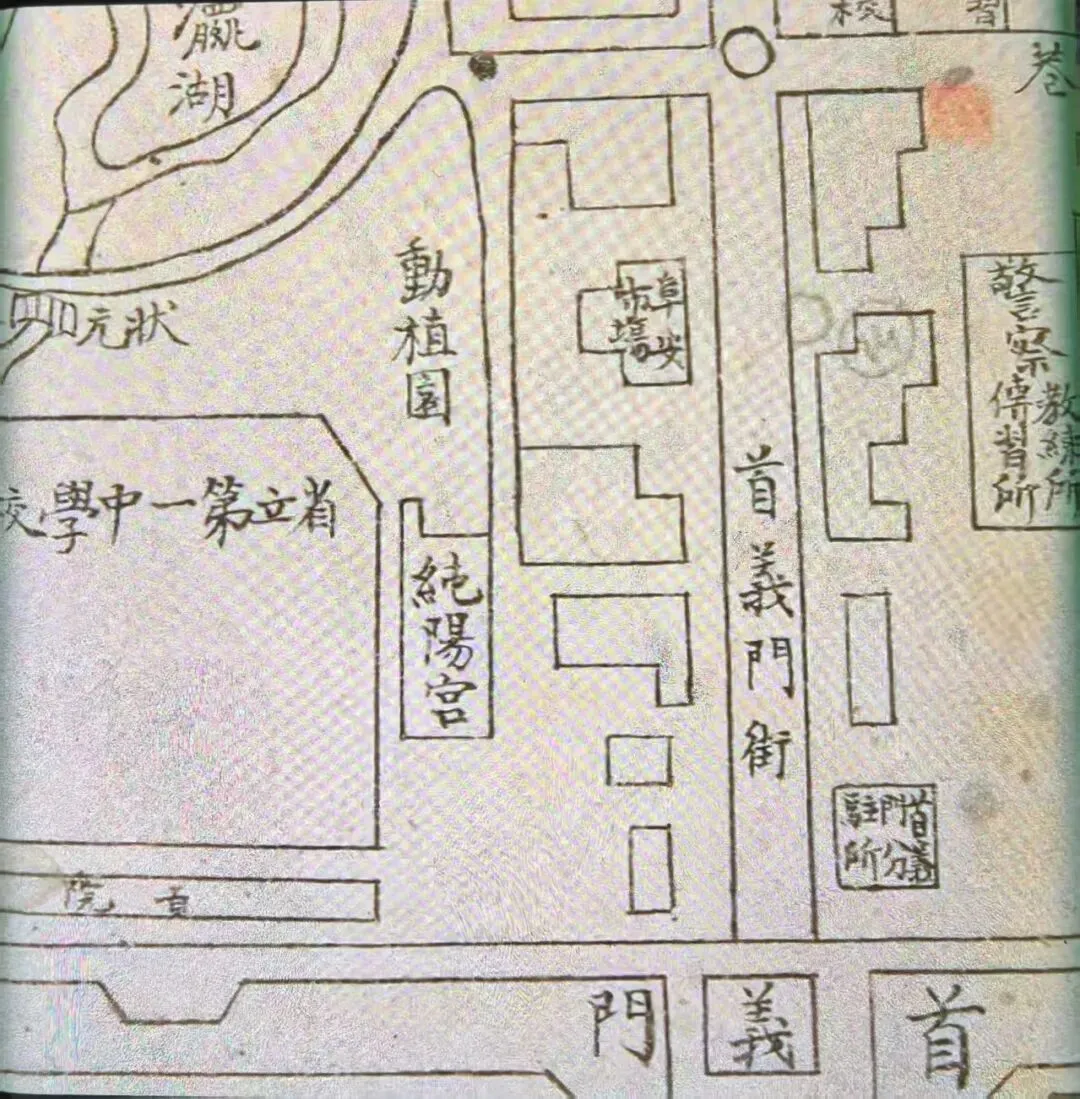 習
校
巷
瀛
湖
動植園
狀元
阜安
市場
警察
教練所
傳習所
首義門街
省立第一中學校
純陽宮
首義
門分
駐所
院
首義門